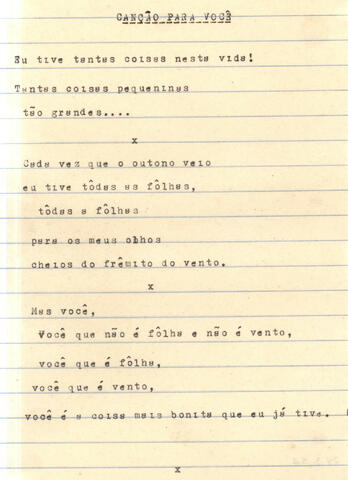 CANÇÃO PARA VOCÊ
Eu tive tantas coisas nesta vida!
Tantas coisas pequeninas
tão grandes....
x
Cada vez que o outono veio
eu tive tôdas as fôlhas,
tôdas a fôlhas
para os meus olhos
cheios do frêmito do vento.
x
Mas você,
Você que não é fôlha e não é vento,
você que é fôlha,
você que é vento,
você é a coisa mais bonita que eu já tive.
x